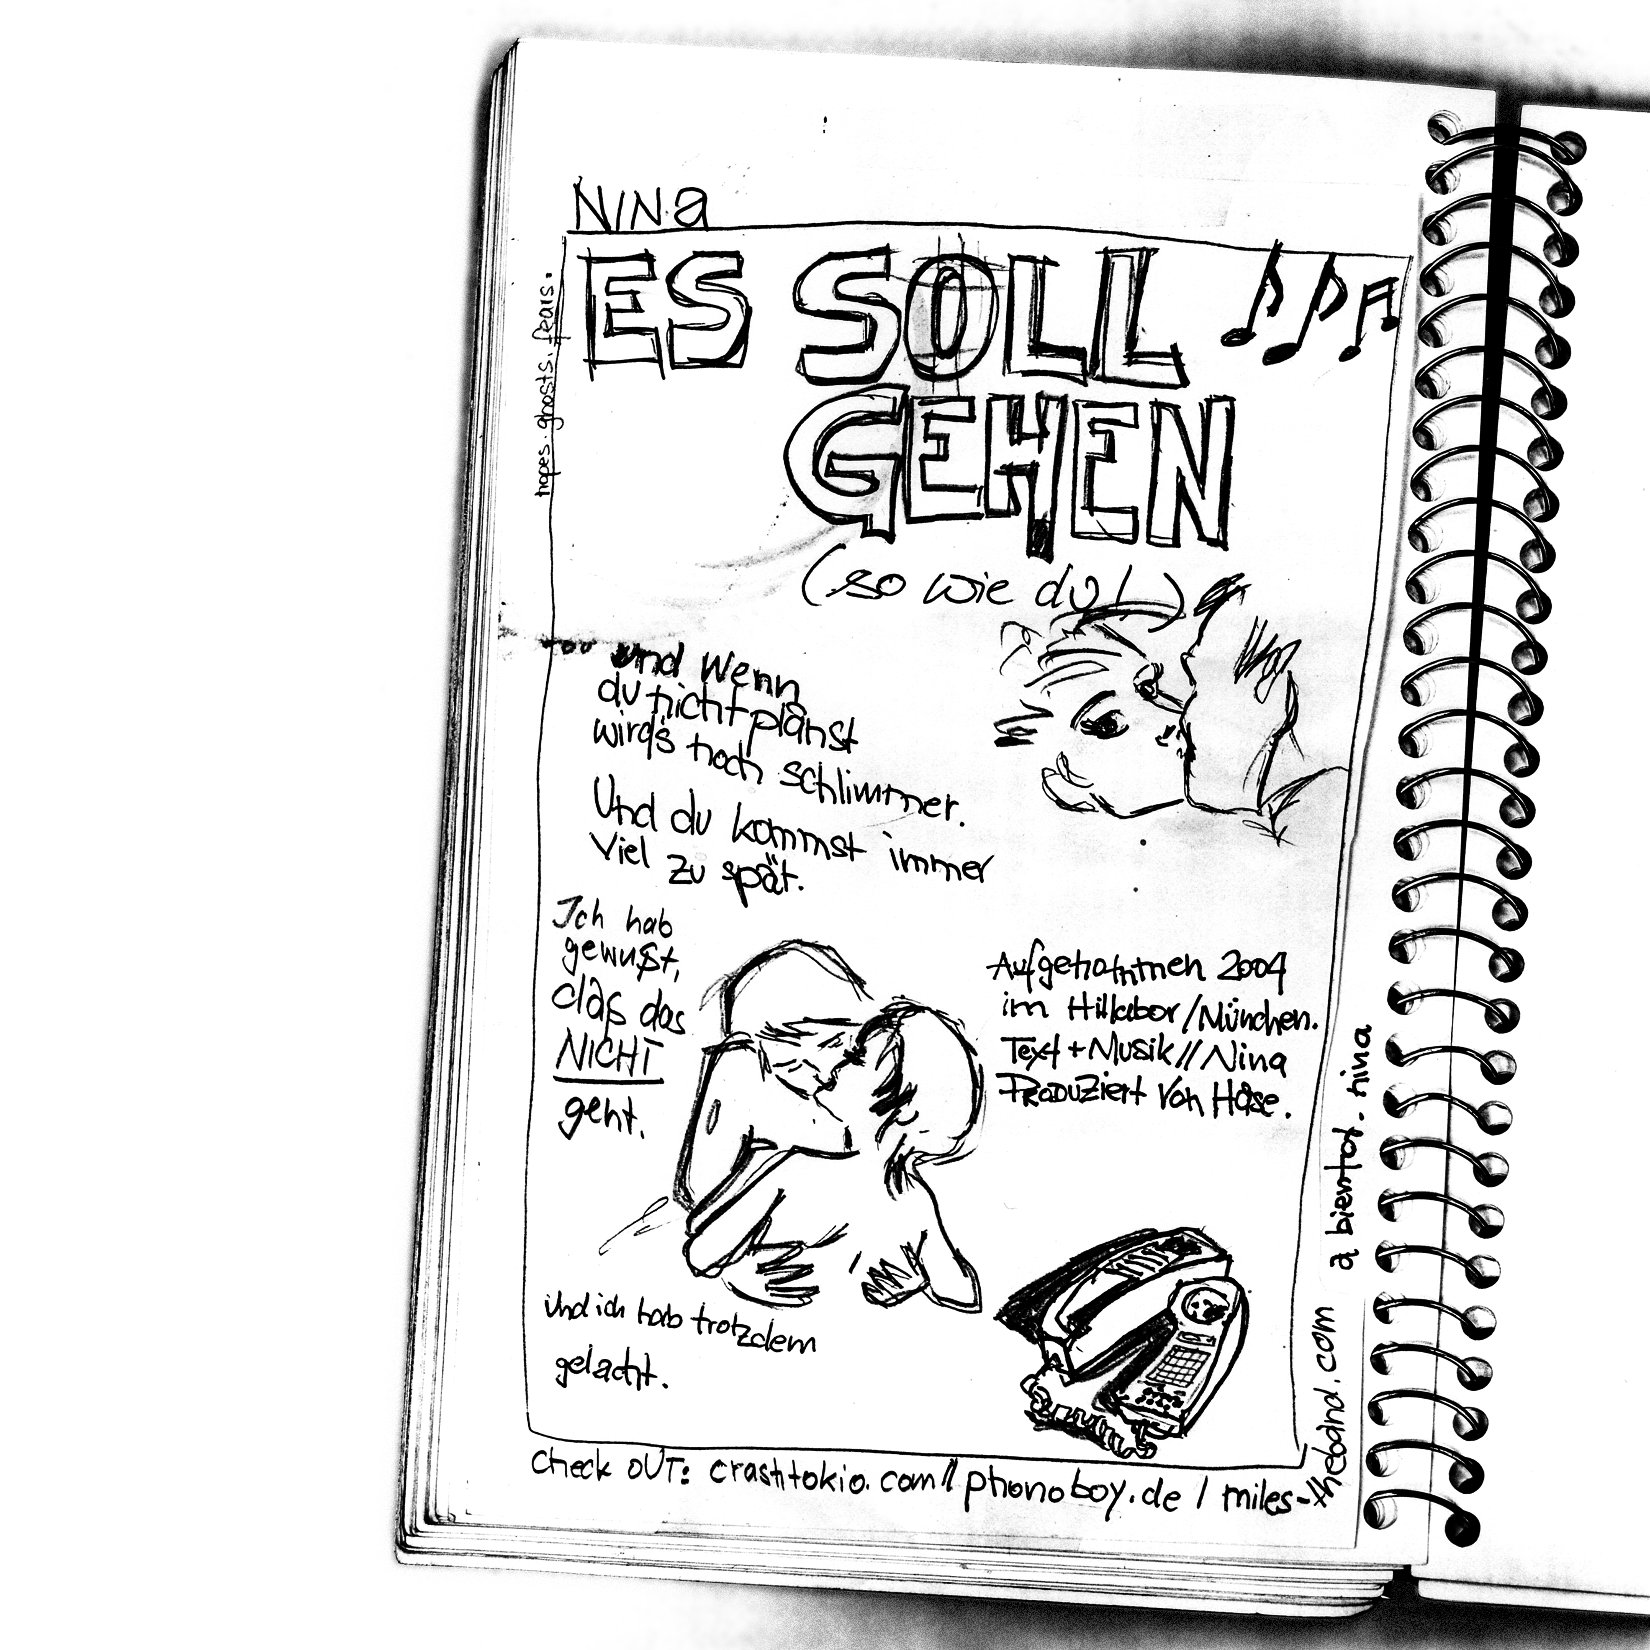 NINa
ES SOLL
GEHEN
(so wie du!)
hopes.ghosts.fears.
und wenn
du nicht planst
wird's noch schlimmer.
Und du kommst immer
viel zu spät.
Ich hab
gewußt,
daß das
NICHT
geht.
Aufgenommen 2004
im Hillabor/München.
Text + Musik // Nina
PRODUZiert von Hase.
und ich hab trotzdem
gelacht.
check OUT: crashtokio.com // phonoboy.de / miles-theband.com
a bientot. nina